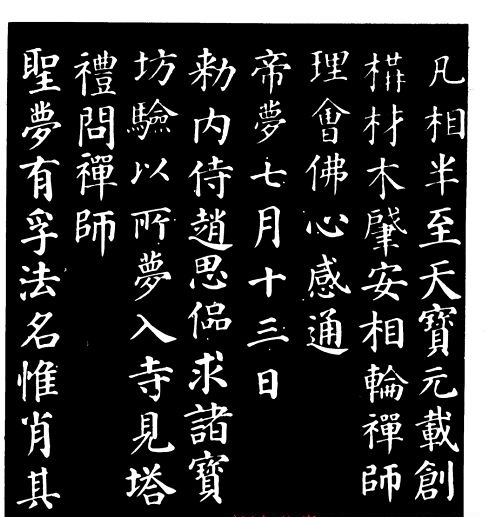 凡相半至天寶元載創
構材木肇安相輪禪師
理會佛心感通
帝夢七月十三日
勅內侍趙思侃求諸寶
坊驗以所夢入寺見塔
禮問禪師
聖夢有孚法名惟肖其